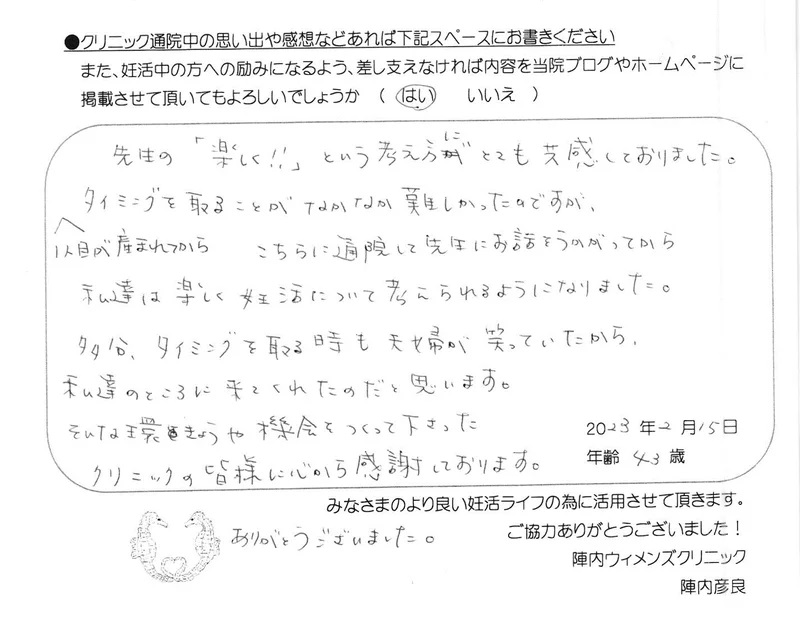 ●クリニック通院中の思い出や感想などあれば下記スペースにお書きください
また、妊活中の方への励みになるよう、差し支えなければ内容を当院ブログやホームページに
掲載させて頂いてもよろしいでしょうか （ はい いいえ ）
先生の「楽しく!!」という考え方に とても共感しておりました。
タイミングを取ることがなかなか難しかったのですが、
1人目が産まれてから こちらに通院して先生にお話をうかがってから
私達は楽しく妊活について考えられるようになりました。
多分、タイミングを取る時も夫婦が笑っていたから、
私達のところに来てくれたのだと思います。
そんな環きょうや機会をつくって下さった
クリニックの皆様に心から感謝しております。
2023年2月15日
年齢 43歳
みなさまのより良い妊活ライフの為に活用させて頂きます。
ありがとうございました。
ご協力ありがとうございました！
陣内ウィメンズクリニック
陣内彦良